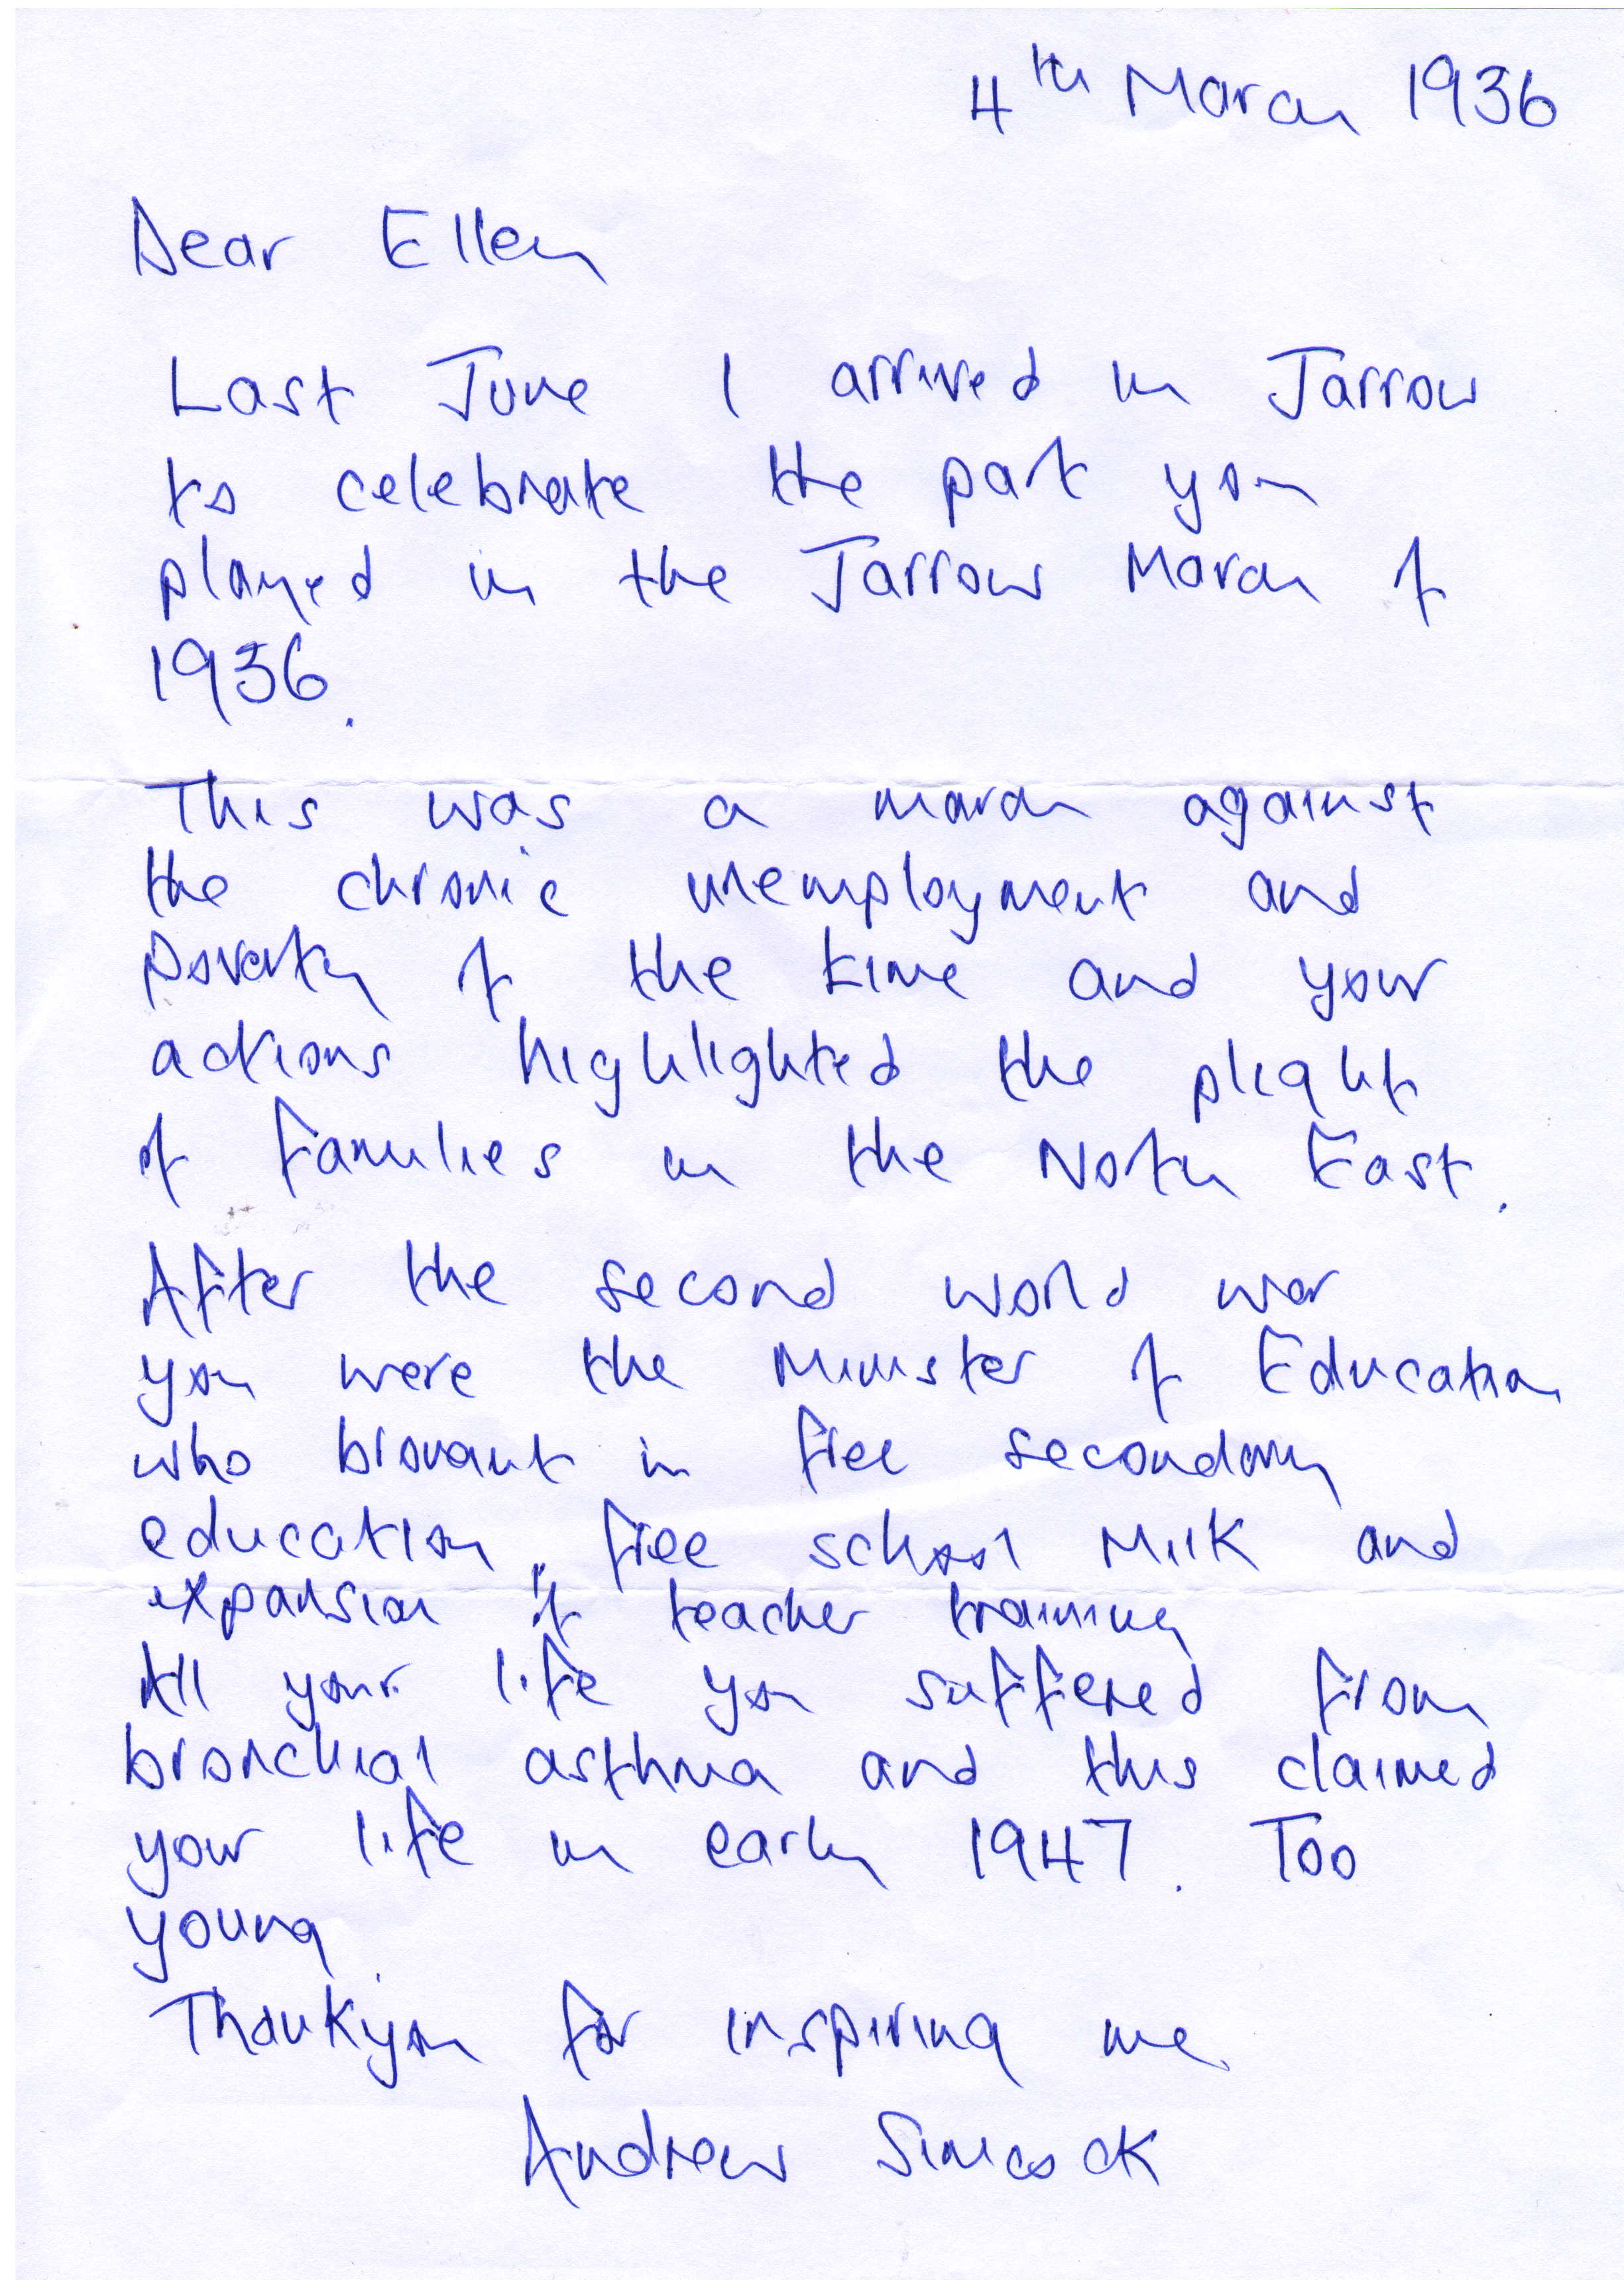 4th March 1936
Dear Ellen
Last June I arrived in Jarrow
to celebrate the part you
played in the Jarrow March of
1936.
This was a march against
the chronic unemployment and
poverty of the time and your
actions highlighted the plight
of families in the North East.
After the second world war
you were the Minister of Education
who brought in free secondary
education, free school milk and
expansion of teacher training
All your life you suffered from
bronchial asthma and this claimed
your life in early 1947. Too
young.
Thankyou for inspiring me.
Andrew Simcock